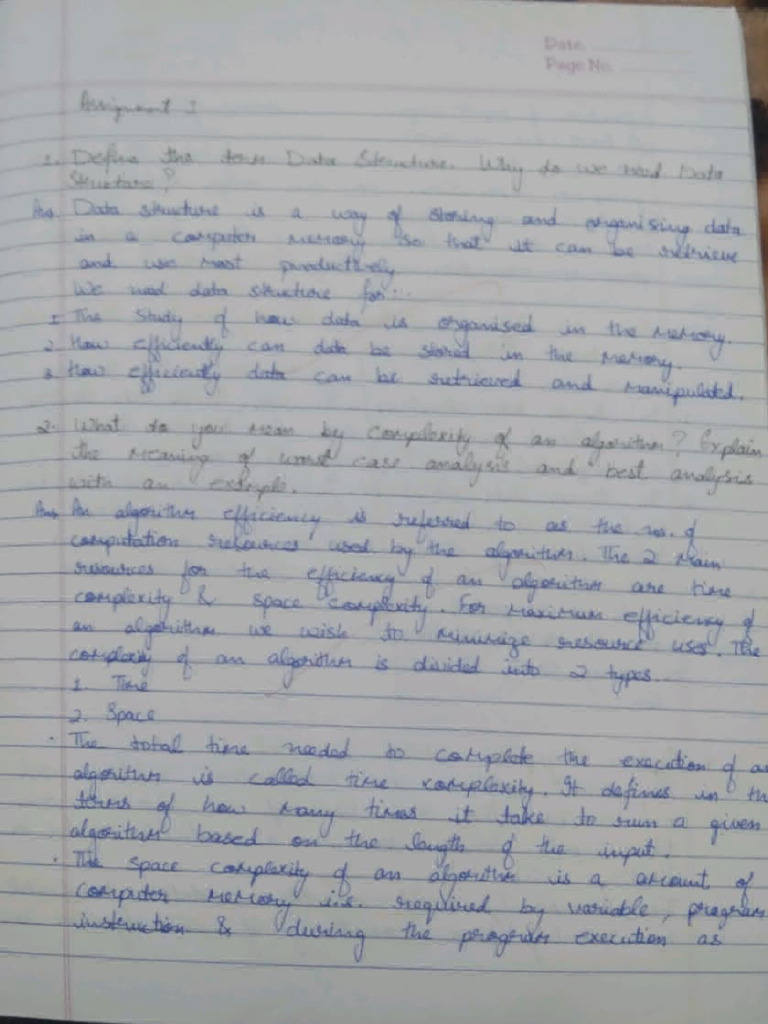 Date
Page No.
Assignment 1
1. Define the term Data Structure. Why do we need Data
Structure?
Ans. Data structure is a way of storing and organising data
in a computer memory so that it can be retrieve
and use most productively
We need data structure for:-
1. The study of how data is organised in the memory.
2. How efficiently can data be stored in the memory.
3. How efficiently data can be retrieved and manipulated.
2. What do you mean by complexity of an algorithm? Explain
the meaning of worst case analysis and best analysis
with an example.
Ans. An algorithm efficiency is referred to as the no. of
computation resources used by the algorithm. The 2 main
resources for the efficiency of an algorithm are time
complexity & space complexity. For maximum efficiency of
an algorithm we wish to minimize resource uses. The
complexity of an algorithm is divided into 2 types.
1. Time
2. Space
· The total time needed to complete the execution of an
algorithm is called time complexity. It defines in the
terms of how many times it take to run a given
algorithm based on the length of the input.
· The space complexity of an algorithm is a amount of
computer memory i.e. required by variable, program
instruction & during the program execution as